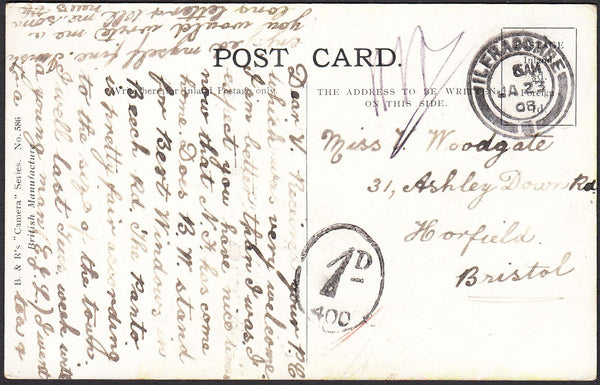 POST CARD.
Write here for Inland Postage only.
THE ADDRESS TO BE WRITTEN
ON THIS SIDE.
POSTAGE
Inland
Foreign
1d
ILFRACOMBE
JA 23
08
Miss V Woodgate
31, Ashley Down Rd
Horfield
Bristol
1D
400
B. & R's "Camera" Series. No. 586
British Manufacture
Dear V. Received your P.C
which was very welcome
I am better than I was, I
expect you have nice times
now that N.F. has come
home. Does B.W. stand
for Best Windows, in
Beech Rd. The Panto
is pretty fair according
to the size of the town.
I fell last Tues. week with
a young man (E.J.L.) I went
to a tea &
myself fine.
you would write me a
long letter & tell me some
news